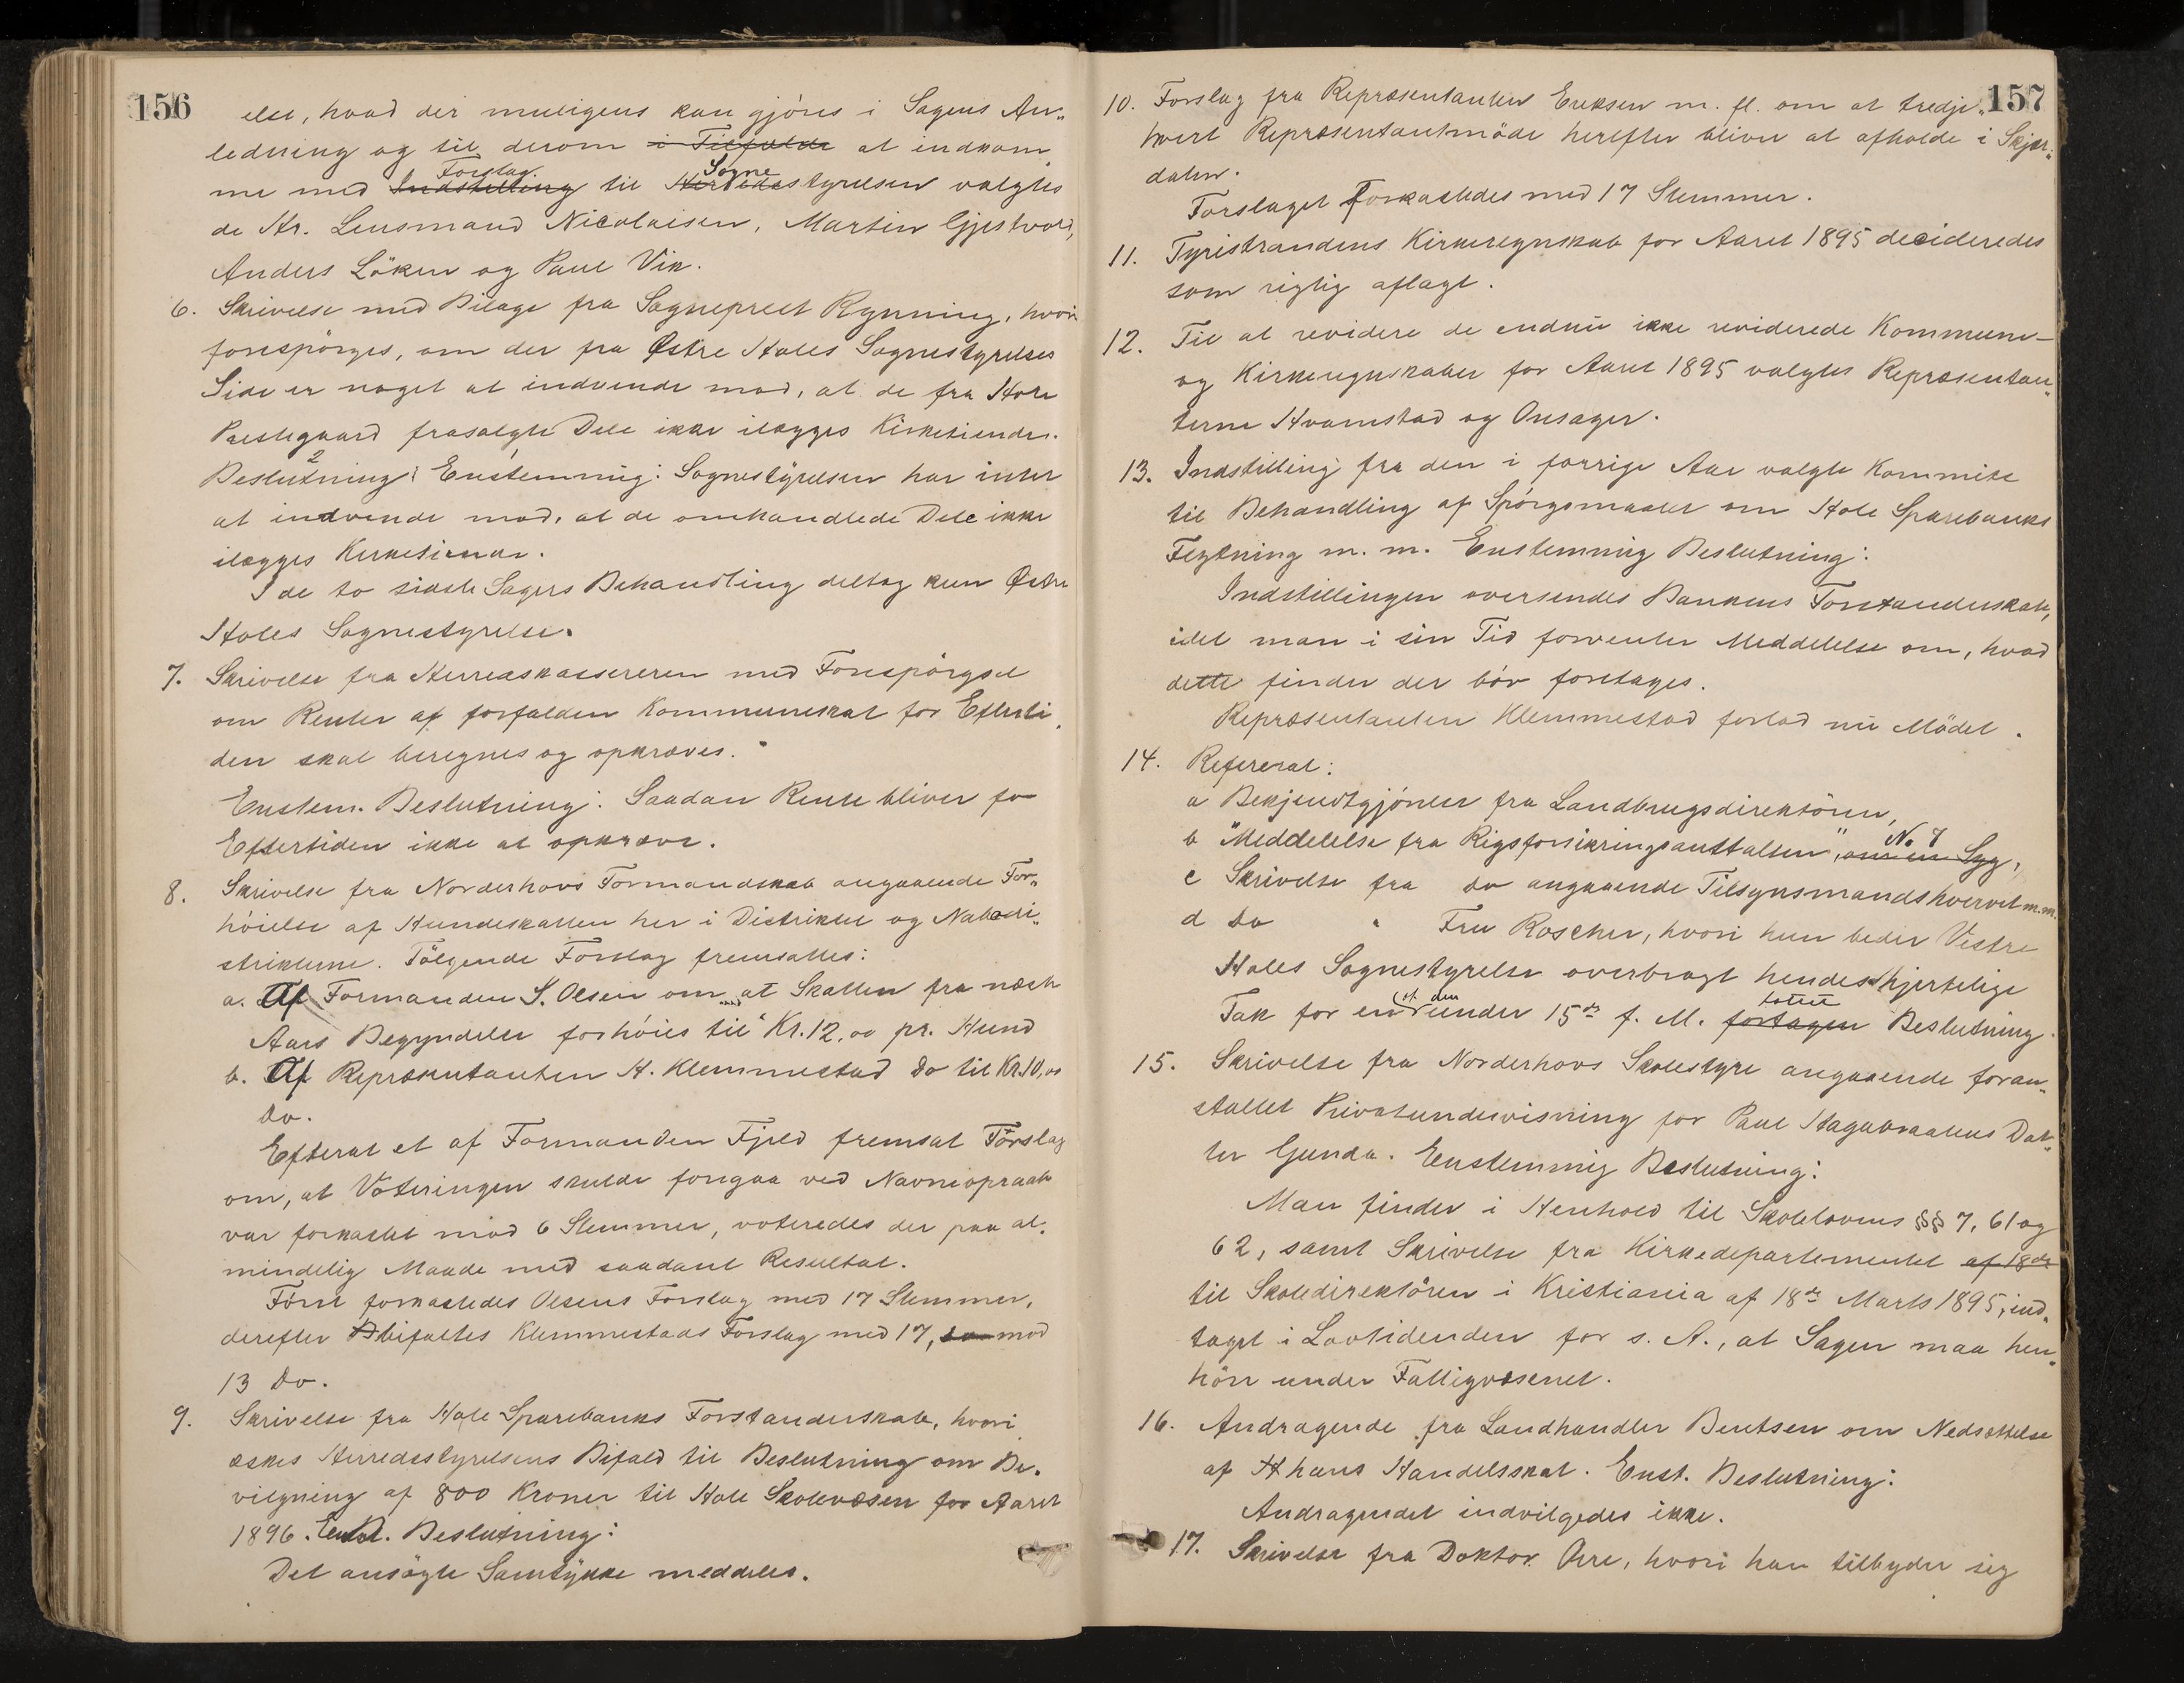 156
else, hvad der muligens kan gjöres i Sagens An„
ledning og til derom i Tilfælde at indkom„
me med Indstilling Forslag til Herredsstyrelsen Sogne valgtes
de Hr. Lensmand Nicolaisen, Martin Gjestvold,
Anders Löken og Paul Vik.
6. Skrivelse med Bilage fra Sogneprest Rynning, hvori
forespörges, om der fra Østre Holes Sognestyrelses
Side er noget at indvende mod, at de fra Hole
Prestegaard frasolgte Dele ikke ilægges Kirketiender.
Beslutning: Enstemmig: Sognestyrelsen har intet
at indvende mod, at de omhandlede Dele ikke
ilægges Kirketiender.
I de to sidste Sagers Behandling deltog kun Østre
Holes Sognestyrelse.
7. Skrivelse fra Herredskassereren med Forespörgsel
om Renter af forfalden Kommuneskat for Efterti„
den skal beregnes og opkræves.
Enstem. Beslutning: Saadan Rente bliver for
Eftertiden ikke at opkræve.
8. Skrivelse fra Norderhovs Formandskab angaaende For„
höielse af Hundeskatten her i Distriktet og Nabodi„
strikterne. Fölgende Forslag fremsattes:
a. Af Formanden S. Olsen om at Skatten fra næste
Aars Begyndelse forhöies til Kr. 12,00 pr. Hund
b. Af Repræsentanten H. Klemmestad Do til Kr. 10,00
Do.
Efterat et af Formanden Fjeld fremsat Forslag
om, at Voteringen skulde foregaa ved Navneopraab
var forkastet mod 6 Stemmer, voteredes der paa al„
mindelig Maade med saadant Resultat.
Först forkastedes Olsens Forslag med 17 Stemmer,
derefter bifaltes Klemmestads Forslag med 17, mod
13 Do.
9. Skrivelse fra Hole Sparebanks Forstanderskab, hvori
æskes Herredsstyrelsens Bifald til Beslutning om Be„
vilgning af 800 Kroner til Hole Skolevæsen for Aaret
1896. Enst. Beslutning:
Det ansögte Samtykke meddeles.
157
10. Forslag fra Repræsentanten Eriksen m. fl. om at tredje„
hvert Repræsentantmöde herefter bliver at afholde i Skjær„
dalen.
Forslaget forkastedes med 17 Stemmer.
11. Tyristrandens Kirkeregnskab for Aaret 1895 decideredes
som rigtig aflagt.
12. Til at revidere de endnu ikke reviderede Kommune-
og Kirkeregnskaber for Aaret 1895 valgtes Repræsentan„
terne Hvamstad og Onsager.
13. Indstilling fra den i forrige Aar valgte Kommite
til Behandling af Spörgsmaalet om Hole Sparebanks
Flytning m. m. Enstemmig Beslutning:
Indstillingen oversendes Bankens Forstanderskab,
idet man i sin Tid forventer Meddelelse om, hvad
dette finder der bör foretages.
Repræsentanten Klemmestad forlod nu Mödet.
14. Refererat:
a Bekjendtgjörelse fra Landbrugsdirektören,
b "Meddelelse fra Rigsforsikringsanstalten", om en Syg, No 7
c Skrivelse fra Do angaaende Tilsynsmandshvervet m.m.
d Do " Fru Roscher, hvori hun beder Vestre
Holes Sognestyrelse overbragt hendes hjertelige
Tak for en af den under 15de f. M. fortagen fattet Beslutning.
15. Skrivelse fra Norderhovs Skolestyre angaaende foran„
staltet Privatundervisning for Paul Hagabraatens Dat„
ter Gunda. Enstemmig Beslutning:
Man finder i Henhold til Skolelovens §§ 7, 61 og
62, samt Skrivelse fra Kirkedepartementet af 18de
til Skoledirektören i Kristiania af 18de Marts 1895, ind„
taget i Lovtidenden for s. A., at Sagen maa hen„
höre under Fattigvæsenet.
16. Andragende fra Landhandler Bentsen om Nedsættelse
af hans Handelsskat. Enst. Beslutning:
Andragendet indvilgedes ikke.
17. Skrivelse fra Doktor, hvori han tilbyder sig